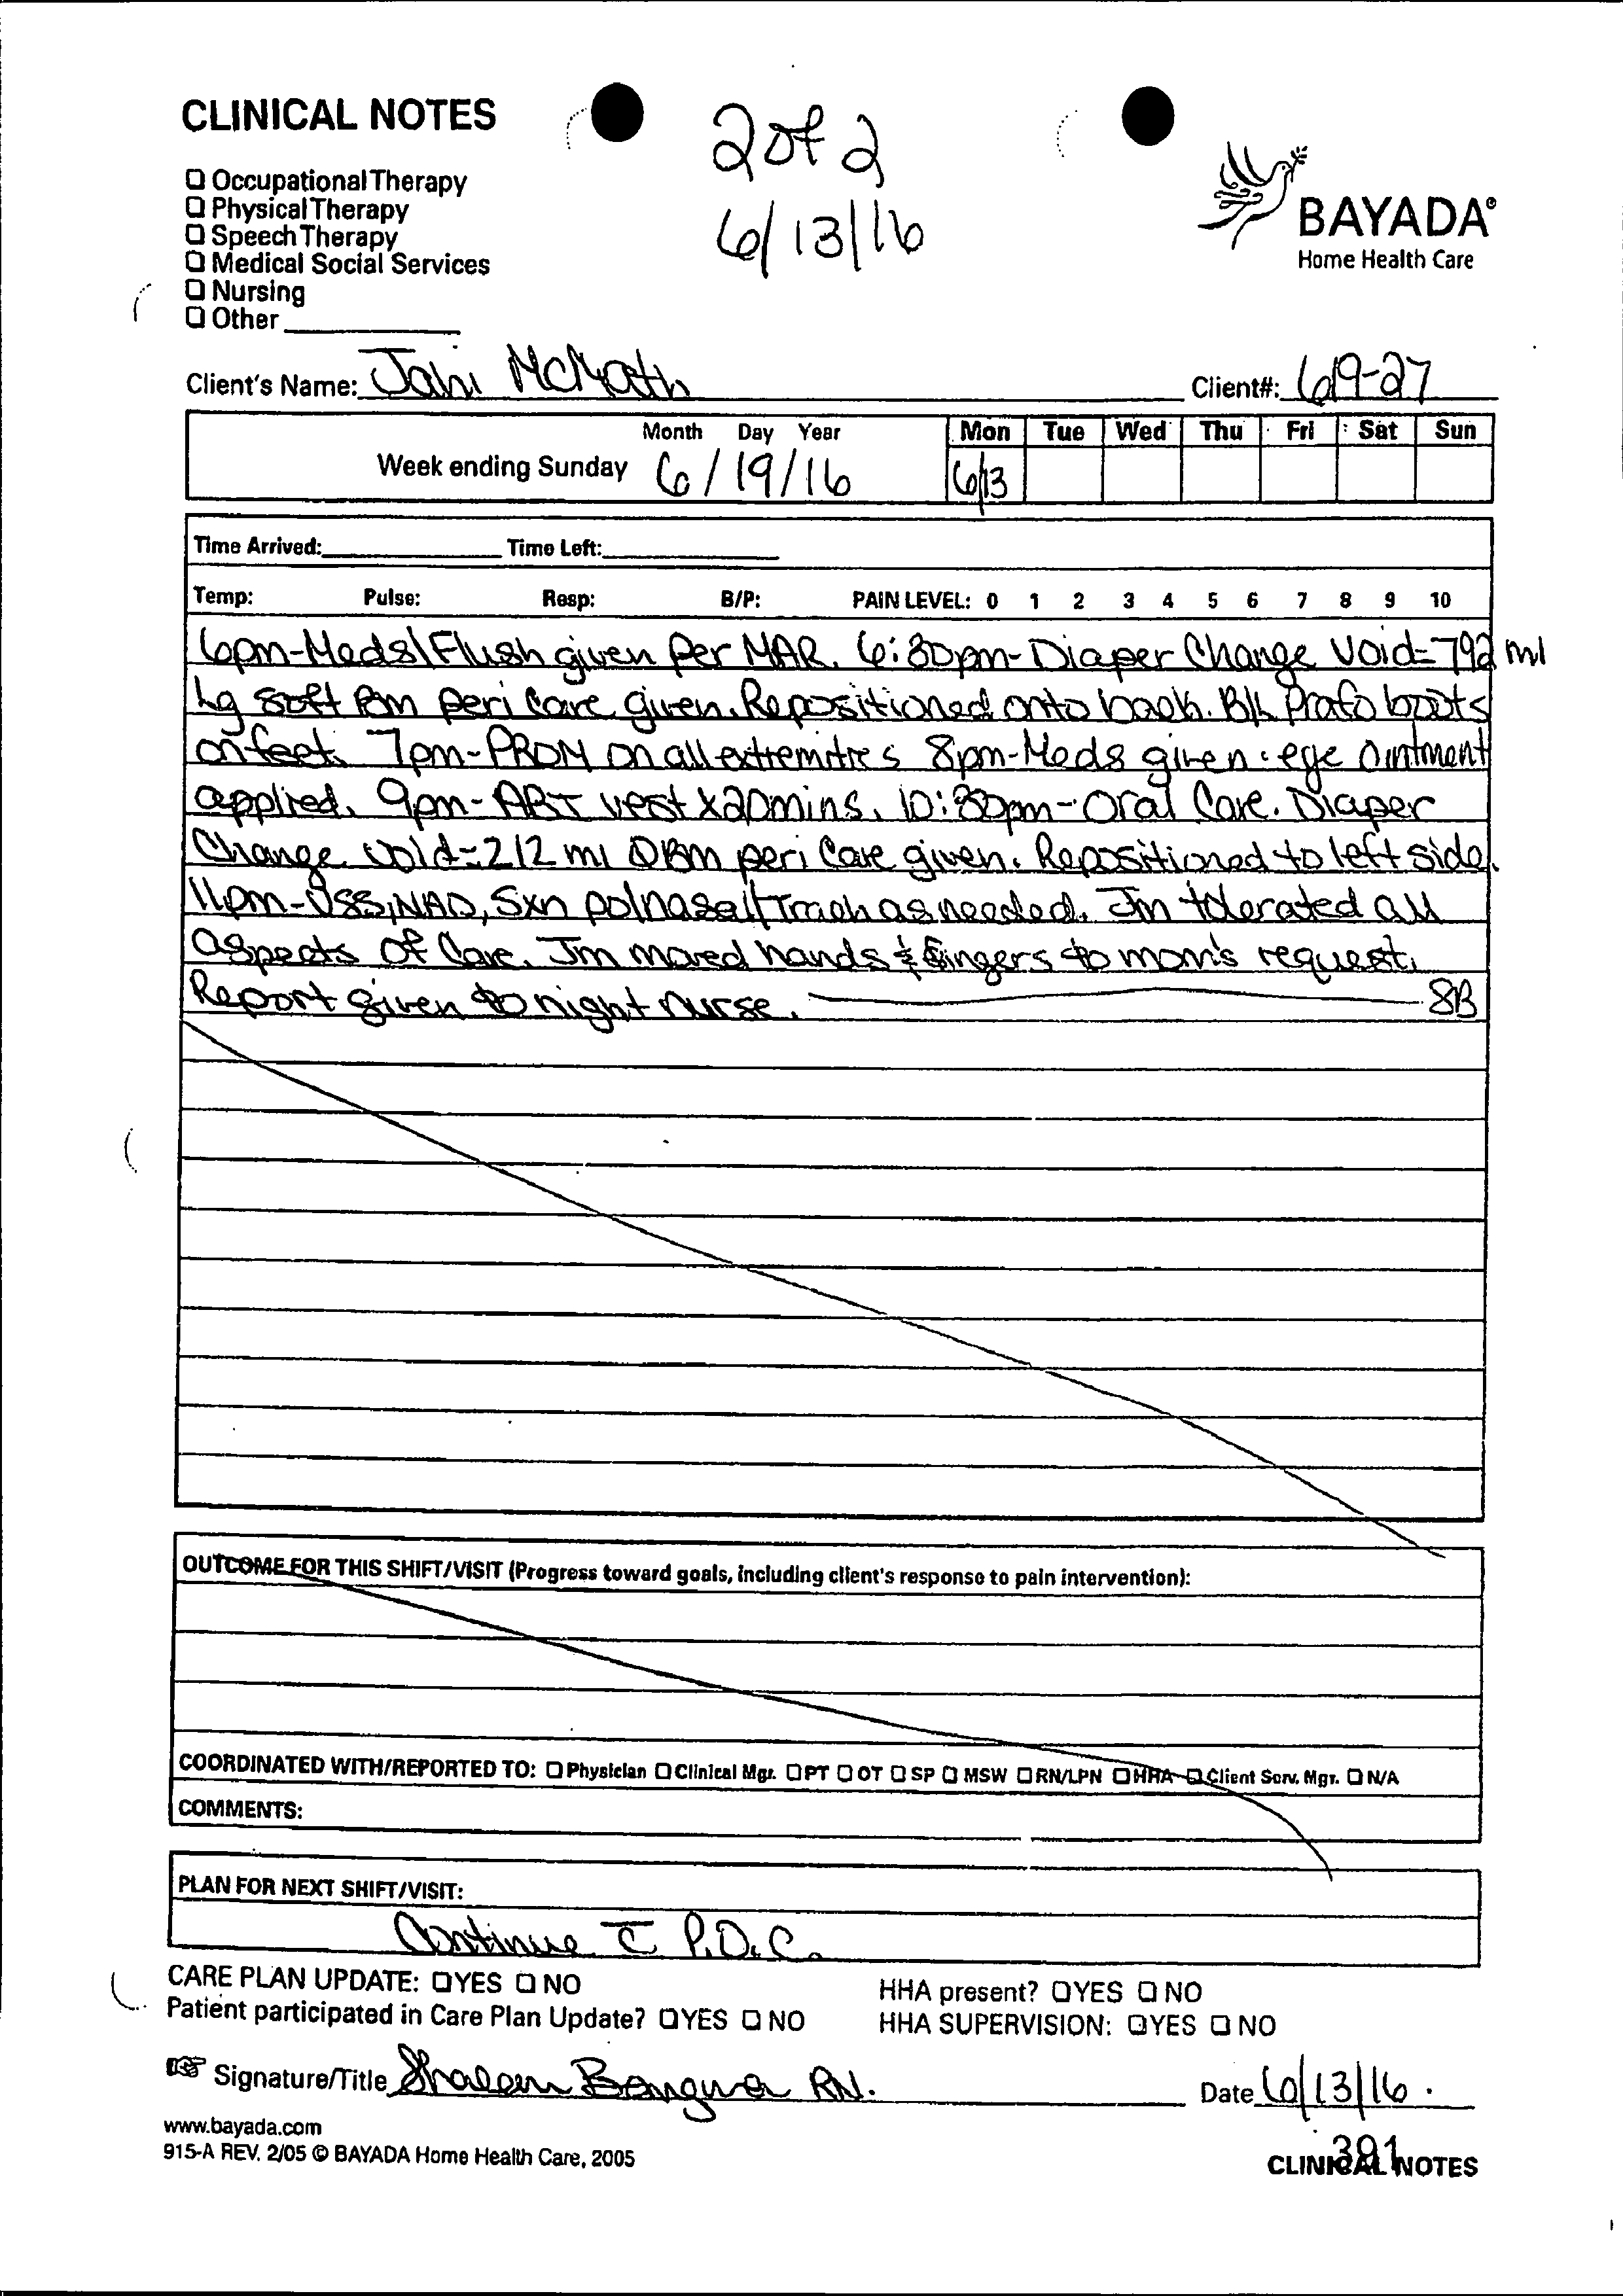 CLINICAL NOTES
2 of 2
6/13/16
☐ Occupational Therapy
☐ Physical Therapy
☐ Speech Therapy
☐ Medical Social Services
☐ Nursing
☐ Other
BAYADA®
Home Health Care
Client's Name: Jahi McMath Client#: 619-27
Month Day Year Mon Tue Wed Thu Fri Sat Sun
Week ending Sunday 6/19/16 6/13
Time Arrived: Time Left:
Temp: Pulse: Resp: B/P: PAIN LEVEL: 0 1 2 3 4 5 6 7 8 9 10
6pm-Meds\Flush given Per MAR. 6:30pm-Diaper Change Void=792 ml
Lg Soft Bm peri care given. Repositioned onto back. B/L Prafo boots
on feet. 7pm-PROM on all extremities 8pm-Meds given: eye Ointment
applied. 9pm- vest x20mins. 10:30pm-Oral Care. Diaper
Change void=212 ml ØBM peri Care given. Repositioned to left side.
11pm-VSS, NAD, Sxn po/nasal/Trach as needed. Jm tolerated all
aspects of Care. Jm moved hands & fingers to mom's request.
Report given to night nurse. SB
OUTCOME FOR THIS SHIFT/VISIT (Progress toward goals, including client's response to pain intervention):
COORDINATED WITH/REPORTED TO: ☐ Physician ☐ Clinical Mgr. ☐ PT ☐ OT ☐ SP ☐ MSW ☐ RN/LPN ☐ HHA ☐ Client Serv. Mgr. ☐ N/A
COMMENTS:
PLAN FOR NEXT SHIFT/VISIT:
Continue c̄ P.O.C.
CARE PLAN UPDATE: ☐ YES ☐ NO HHA present? ☐ YES ☐ NO
Patient participated in Care Plan Update? ☐ YES ☐ NO HHA SUPERVISION: ☐ YES ☐ NO
☞ Signature/Title RN. Date 6/13/16.
www.bayada.com
915-A REV. 2/05 © BAYADA Home Health Care, 2005
CLINICAL NOTES
391